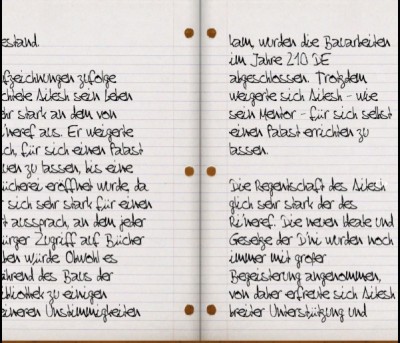 estand.
fzeichnungen zufolge
chtete Ailesh sein Leben
ehr stark an dem von
i'neref aus. Er weigerte
ch, für sich einen Palast
uen zu lassen, bis eine
ücherei eröffnet wurde, da
r sich sehr stark für einen
t aussprach, an dem jeder
ürger Zugriff auf Bücher
ben würde. Obwohl es
ährend des Baus der
ibliothek zu einigen
eineren Unstimmigkeiten
kam, wurden die Bauarbeiten
im Jahre 210 DE
abgeschlossen. Trotzdem
weigerte sich Ailesh - wie
sein Mentor - für sich selbst
einen Palast errichten zu
lassen.
Die Regentschaft des Ailesh
glich sehr stark der des
Ri'neref. Die neuen Ideale und
Gesetze der D'ni wurden noch
immer mit großer
Begeisterung angenommen,
von daher erfreute sich Ailesh
breiter Unterstützung und